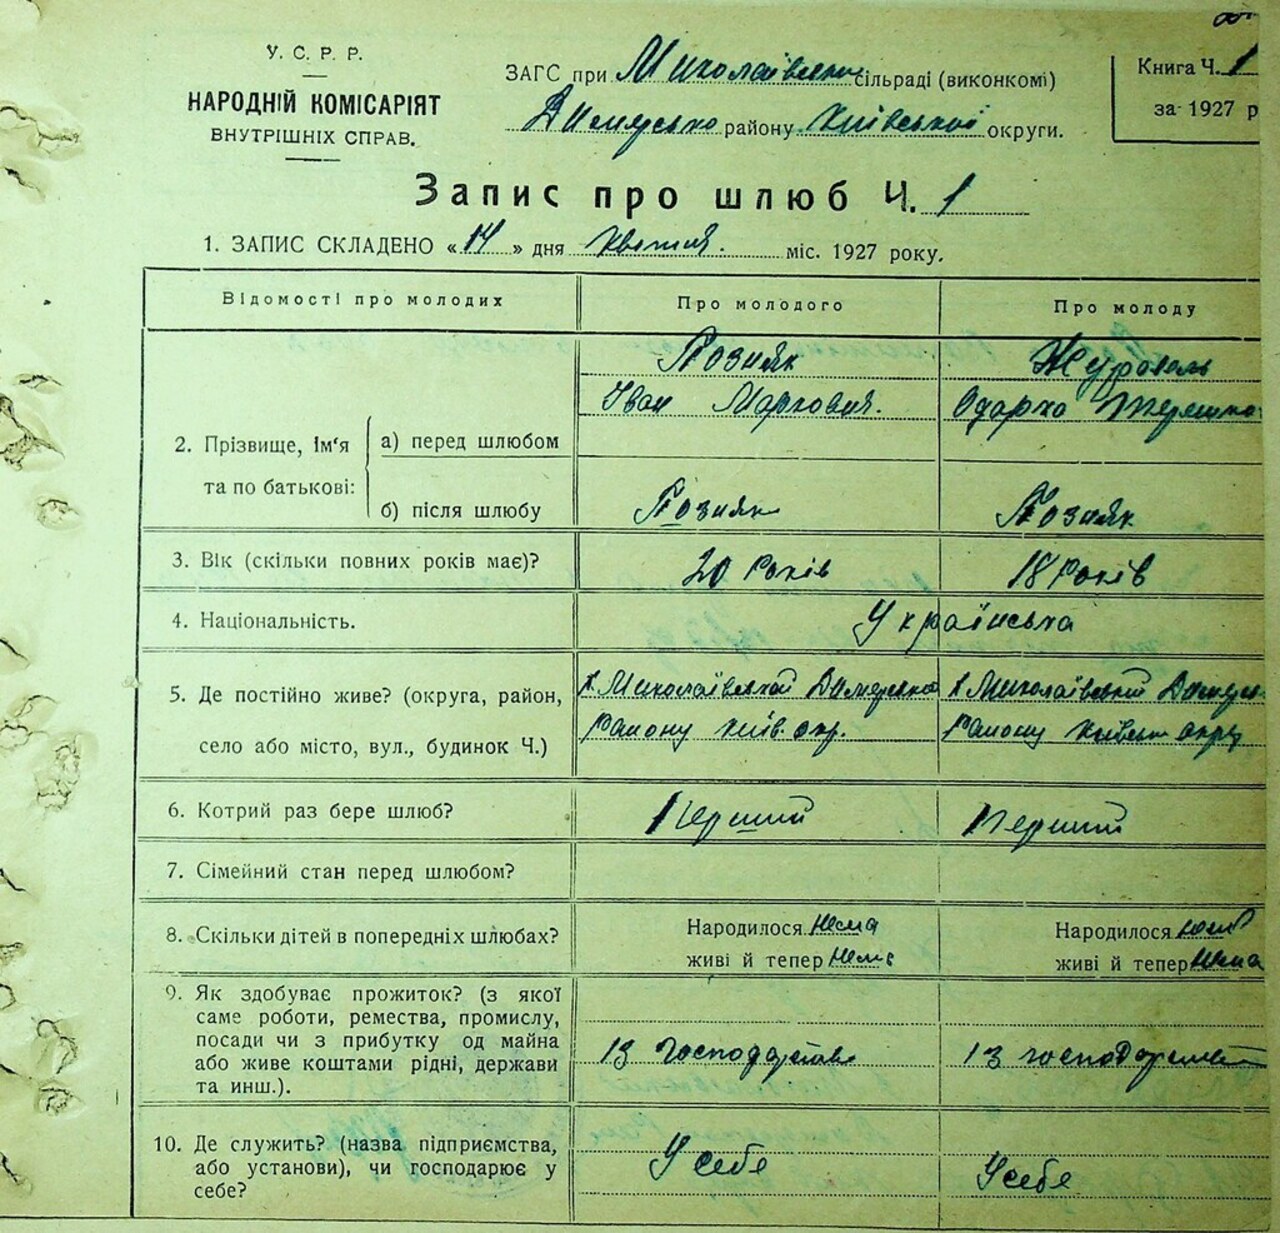 У. С. Р. Р.
НАРОДНІЙ КОМІСАРІЯТ
ВНУТРІШНІХ СПРАВ.
ЗАГС при Миколаївській сільраді (виконкомі)
Димерсько району Київської округи.
Книга Ч. 1
за 1927 р
Запис про шлюб Ч. 1
1. ЗАПИС СКЛАДЕНО «14» дня квітня. міс. 1927 року.
Відомості про молодих
Про молодого
Про молоду
2. Прізвище, Ім‘я
та по батькові:
а) перед шлюбом
Позняк
Іван Маркович.
Журавель
Одарка
б) після шлюбу
Позняк
Позняк
3. Вік (скільки повних років має)?
20 років
18 років
4. Національність.
Українська
5. Де постійно живе? (округа, район,
село або місто, вул., будинок Ч.)
х Миколаївській Димерсько
району Київ. окр.
х Миколаївській Димерсь
району Київськ окру
6. Котрий раз бере шлюб?
Перший
Перший
7. Сімейний стан перед шлюбом?
8. Скільки дітей в попередніх шлюбах?
Народилося нема
живі й тепер нема
Народилося
живі й тепер нема
9. Як здобуває прожиток? (з якої
саме роботи, ремества, промислу,
посади чи з прибутку од майна
або живе коштами рідні, держави
та инш.).
Із господарства
Із господарства
10. Де служить? (назва підприємства,
або установи), чи господарює у
себе?
У себе
У себе